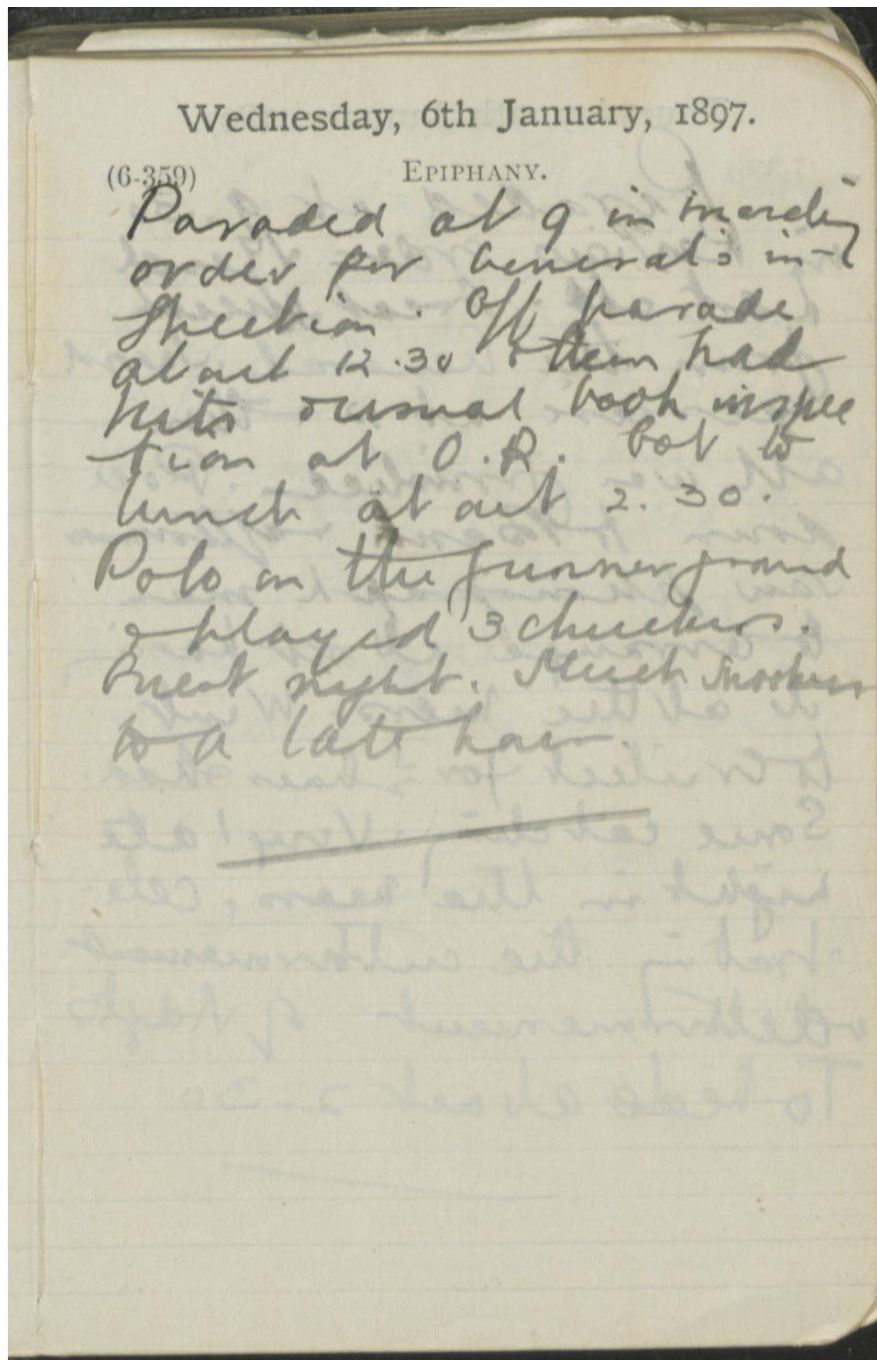 Wednesday, 6th January, 1897.
(6-359) EPIPHANY.
Paraded at 9 in marching
order for General's in-
spection. Off parade
about 12.30 & then had
kits & usual book inspec
tion at O.R. Got to
lunch about 2.30.
Polo on the gunner ground
& played 3 chuckers.
Guest night. Much snookers
to a late hour.